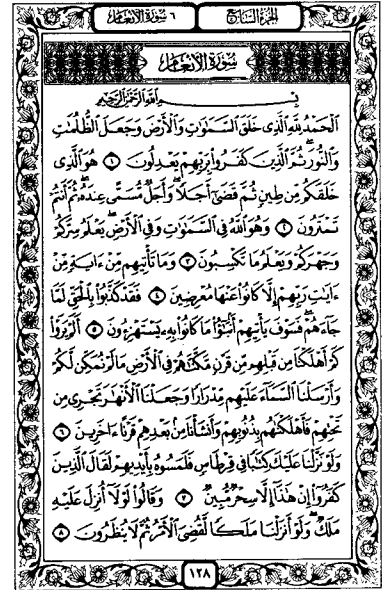 ٦ سورة الأنعام
الجزء السابع
سورة الأنعام
بسم الله الرحمن الرحيم
ٱلۡحَمۡدُ لِلَّهِ ٱلَّذِي خَلَقَ ٱلسَّمَٰوَٰتِ وَٱلۡأَرۡضَ وَجَعَلَ ٱلظُّلُمَٰتِ
وَٱلنُّورَۖ ثُمَّ ٱلَّذِينَ كَفَرُواْ بِرَبِّهِمۡ يَعۡدِلُونَ ١ هُوَ ٱلَّذِي
خَلَقَكُم مِّن طِينٖ ثُمَّ قَضَىٰٓ أَجَلٗاۖ وَأَجَلٞ مُّسَمًّى عِندَهُۥۖ ثُمَّ أَنتُمۡ
تَمۡتَرُونَ ٢ وَهُوَ ٱللَّهُ فِي ٱلسَّمَٰوَٰتِ وَفِي ٱلۡأَرۡضِ يَعۡلَمُ سِرَّكُمۡ
وَجَهۡرَكُمۡ وَيَعۡلَمُ مَا تَكۡسِبُونَ ٣ وَمَا تَأۡتِيهِم مِّنۡ ءَايَةٖ مِّنۡ
ءَايَٰتِ رَبِّهِمۡ إِلَّا كَانُواْ عَنۡهَا مُعۡرِضِينَ ٤ فَقَدۡ كَذَّبُواْ بِٱلۡحَقِّ لَمَّا
جَآءَهُمۡ فَسَوۡفَ يَأۡتِيهِمۡ أَنۢبَٰٓؤُاْ مَا كَانُواْ بِهِۦ يَسۡتَهۡزِءُونَ ٥ أَلَمۡ يَرَوۡاْ
كَمۡ أَهۡلَكۡنَا مِن قَبۡلِهِم مِّن قَرۡنٖ مَّكَّنَّٰهُمۡ فِي ٱلۡأَرۡضِ مَا لَمۡ نُمَكِّن لَّكُمۡ
وَأَرۡسَلۡنَا ٱلسَّمَآءَ عَلَيۡهِم مِّدۡرَارٗا وَجَعَلۡنَا ٱلۡأَنۡهَٰرَ تَجۡرِي مِن
تَحۡتِهِمۡ فَأَهۡلَكۡنَٰهُم بِذُنُوبِهِمۡ وَأَنشَأۡنَا مِنۢ بَعۡدِهِمۡ قَرۡنًا ءَاخَرِينَ ٦
وَلَوۡ نَزَّلۡنَا عَلَيۡكَ كِتَٰبٗا فِي قِرۡطَاسٖ فَلَمَسُوهُ بِأَيۡدِيهِمۡ لَقَالَ ٱلَّذِينَ
كَفَرُوٓاْ إِنۡ هَٰذَآ إِلَّا سِحۡرٞ مُّبِينٞ ٧ وَقَالُواْ لَوۡلَآ أُنزِلَ عَلَيۡهِ
مَلَكٞۖ وَلَوۡ أَنزَلۡنَا مَلَكٗا لَّقُضِيَ ٱلۡأَمۡرُ ثُمَّ لَا يُنظَرُونَ ٨
١٢٨